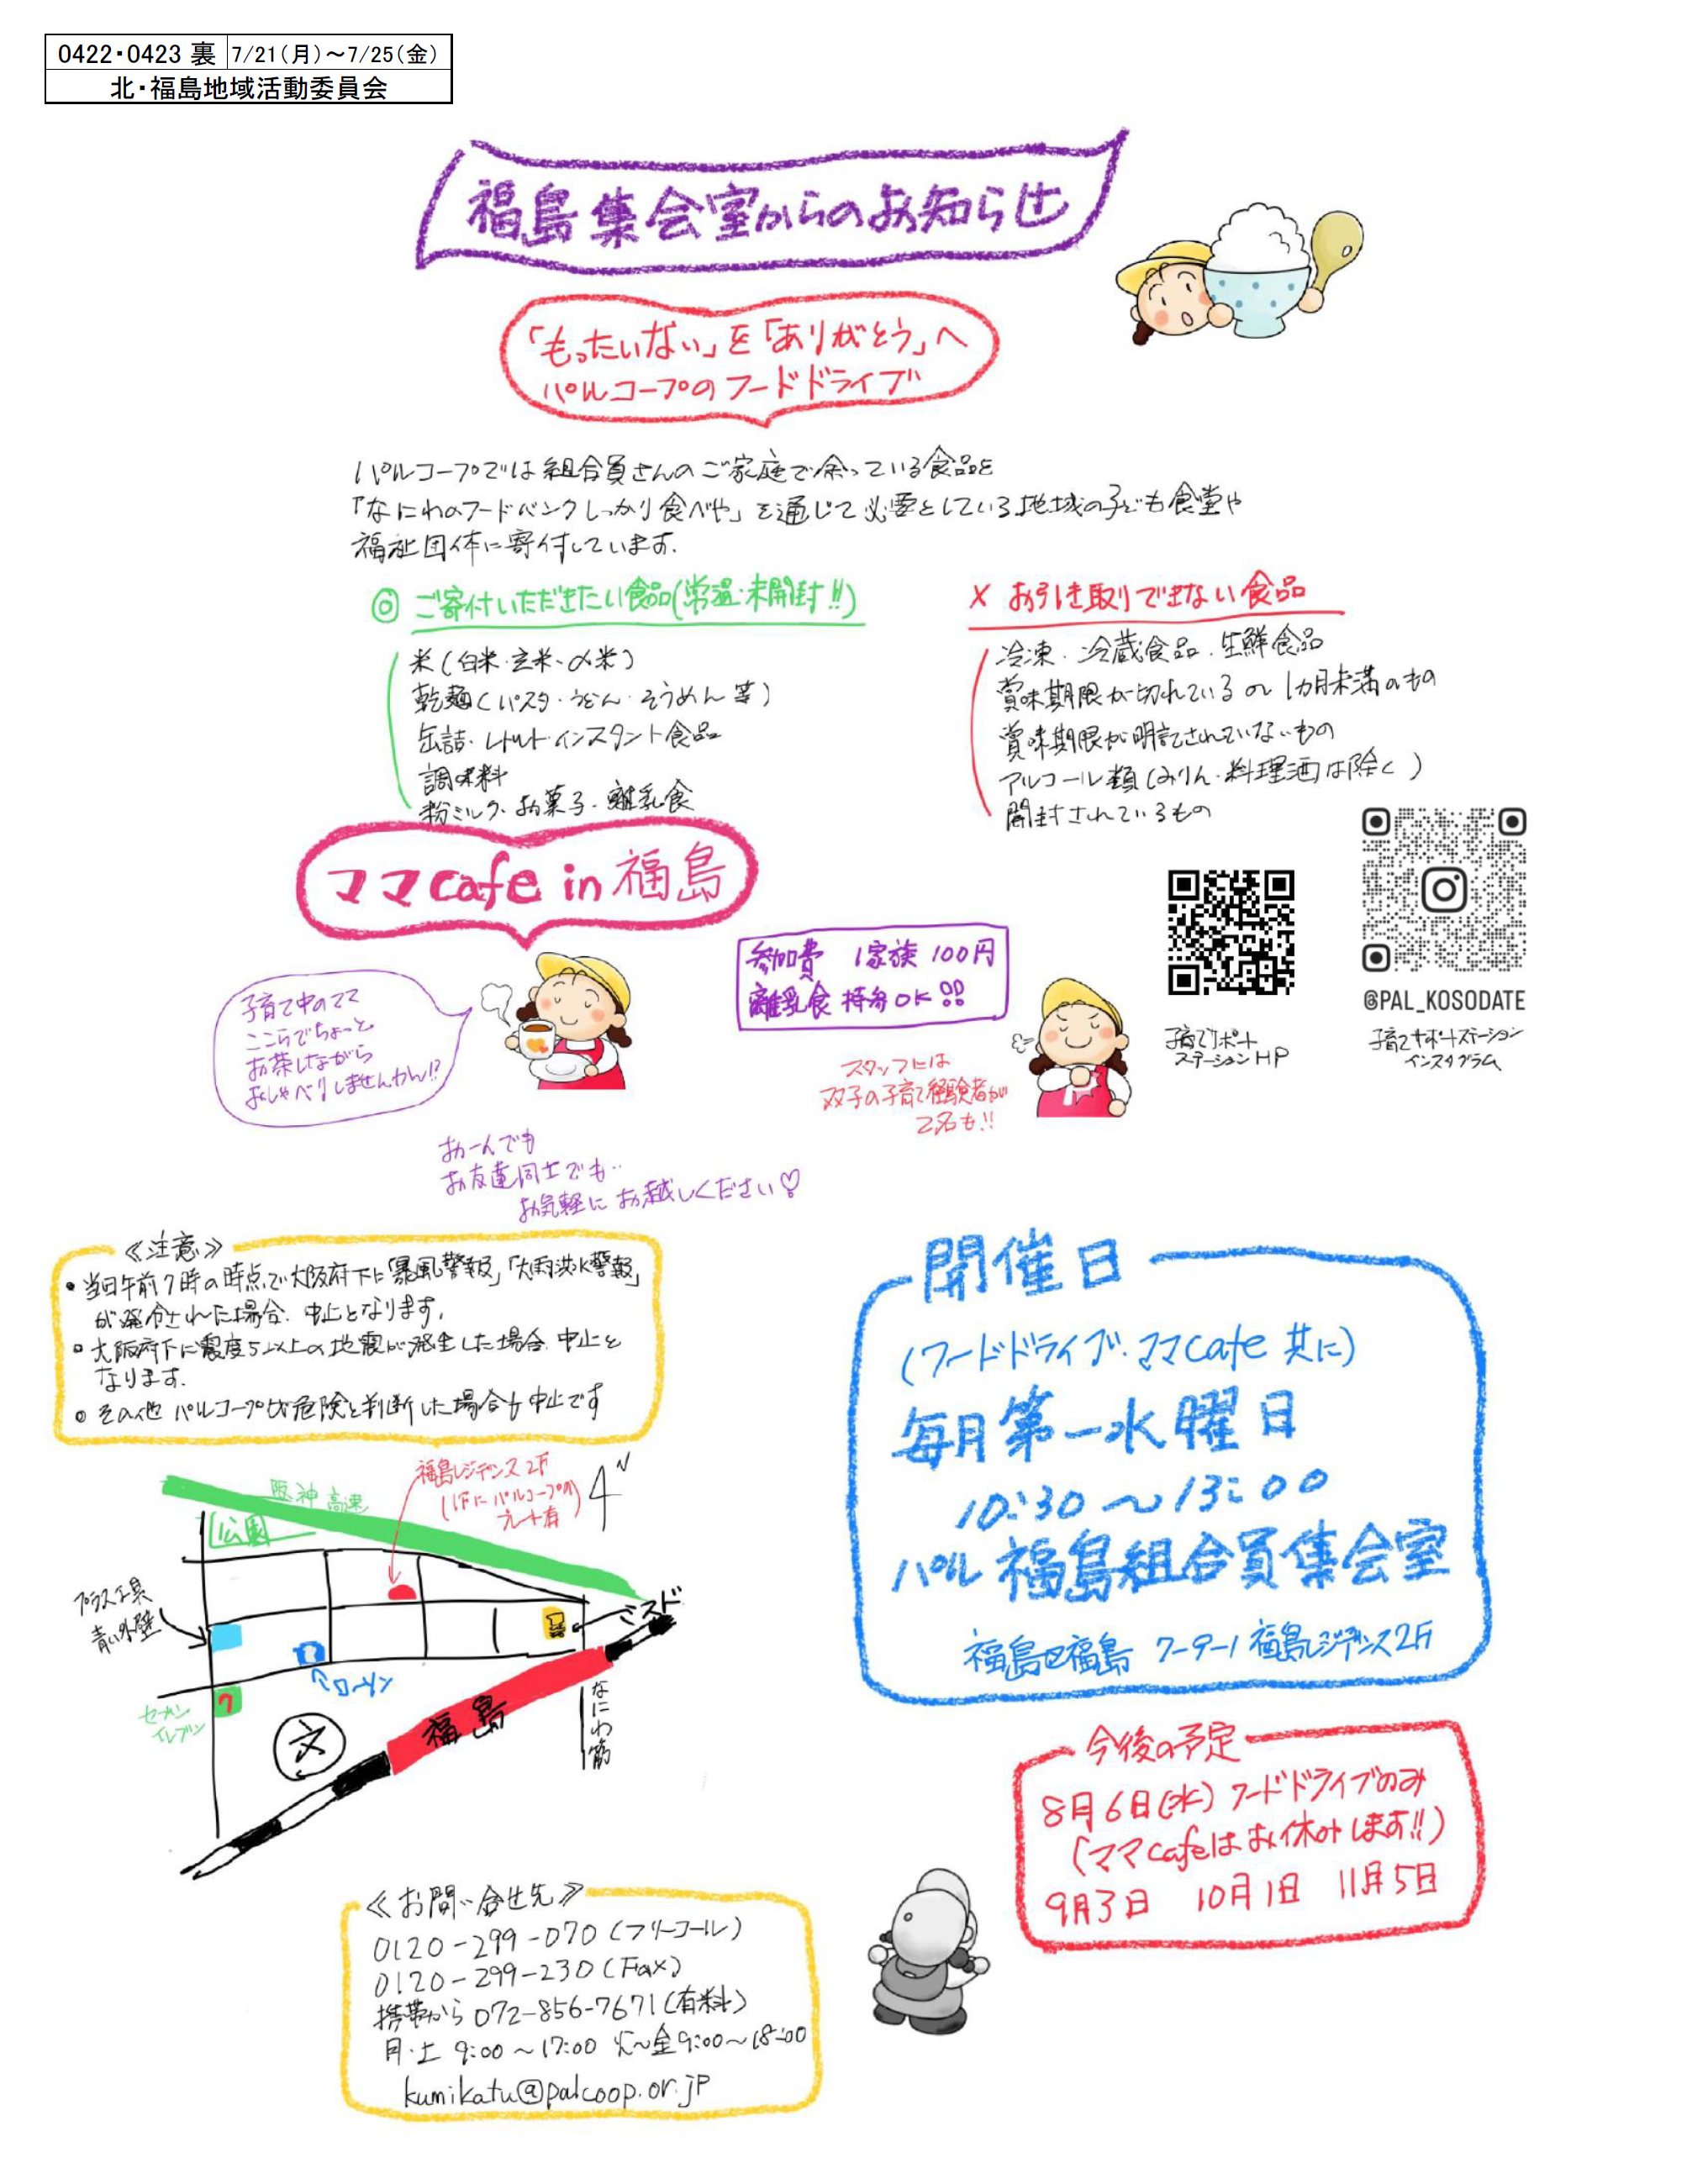 0422・0423 裏 7/21(月)～7/25(金)
北・福島地域活動委員会
福島集会室からのお知らせ
「もったいない」を「ありがとう」へ
パルコープのフードドライブ
パルコープでは組合員さんのご家庭で余っている食品を
「なにわのフードバンクしっかり食べや」を通じて必要としている地域の子ども食堂や
福祉団体に寄付しています.
◎ ご寄付いただきたい食品(常温・未開封!!)
米(白米・玄米・α米)
乾麺(パスタ・うどん・そうめん等)
缶詰・レトルト・インスタント食品
調味料
粉ミルク・お菓子・離乳食
× お引き取りできない食品
冷凍・冷蔵食品・生鮮食品
賞味期限が切れているor1カ月未満のもの
賞味期限が明記されていないもの
アルコール類(みりん・料理酒は除く)
開封されているもの
ママcafe in 福島
子育て中のママ
ここらでちょっと
お茶しながら
おしゃべりしませんかん!?
参加費 1家族 100円
離乳食 持参OK!!
スタッフには
双子の子育て経験者が
2名も!!
子育てサポート
ステーションHP
@PAL_KOSODATE
子育てサポートステーション
インスタグラム
お一人でも
お友達同士でも..
お気軽にお越しください♡
≪注意≫
・当日午前7時の時点で大阪府下に「暴風警報」「大雨洪水警報」
が発令された場合、中止となります.
・大阪府下に震度5以上の地震が発生した場合、中止と
なります.
・その他 パルコープが危険と判断した場合も中止です
開催日
(フードドライブ・ママcafe 共に)
毎月第一水曜日
10:30～13:00
パル 福島組合員集会室
福島区福島 7-9-1 福島レジデンス2F
福島レジデンス2F
(1Fにパルコープの
プレート有)
N
阪神高速
公園
プラス工具
青い外壁
ローソン
セブン
イレブン
7
ミスド
文
福島
なにわ筋
今後の予定
8月6日(水) フードドライブのみ
(ママcafeはお休みします!!)
9月3日 10月1日 11月5日
≪お問い合せ先≫
0120-299-070(フリーコール)
0120-299-230(Fax)
携帯から 072-856-7671(有料)
月・土 9:00～17:00 火～金9:00～18:00
kumikatu@palcoop.or.jp